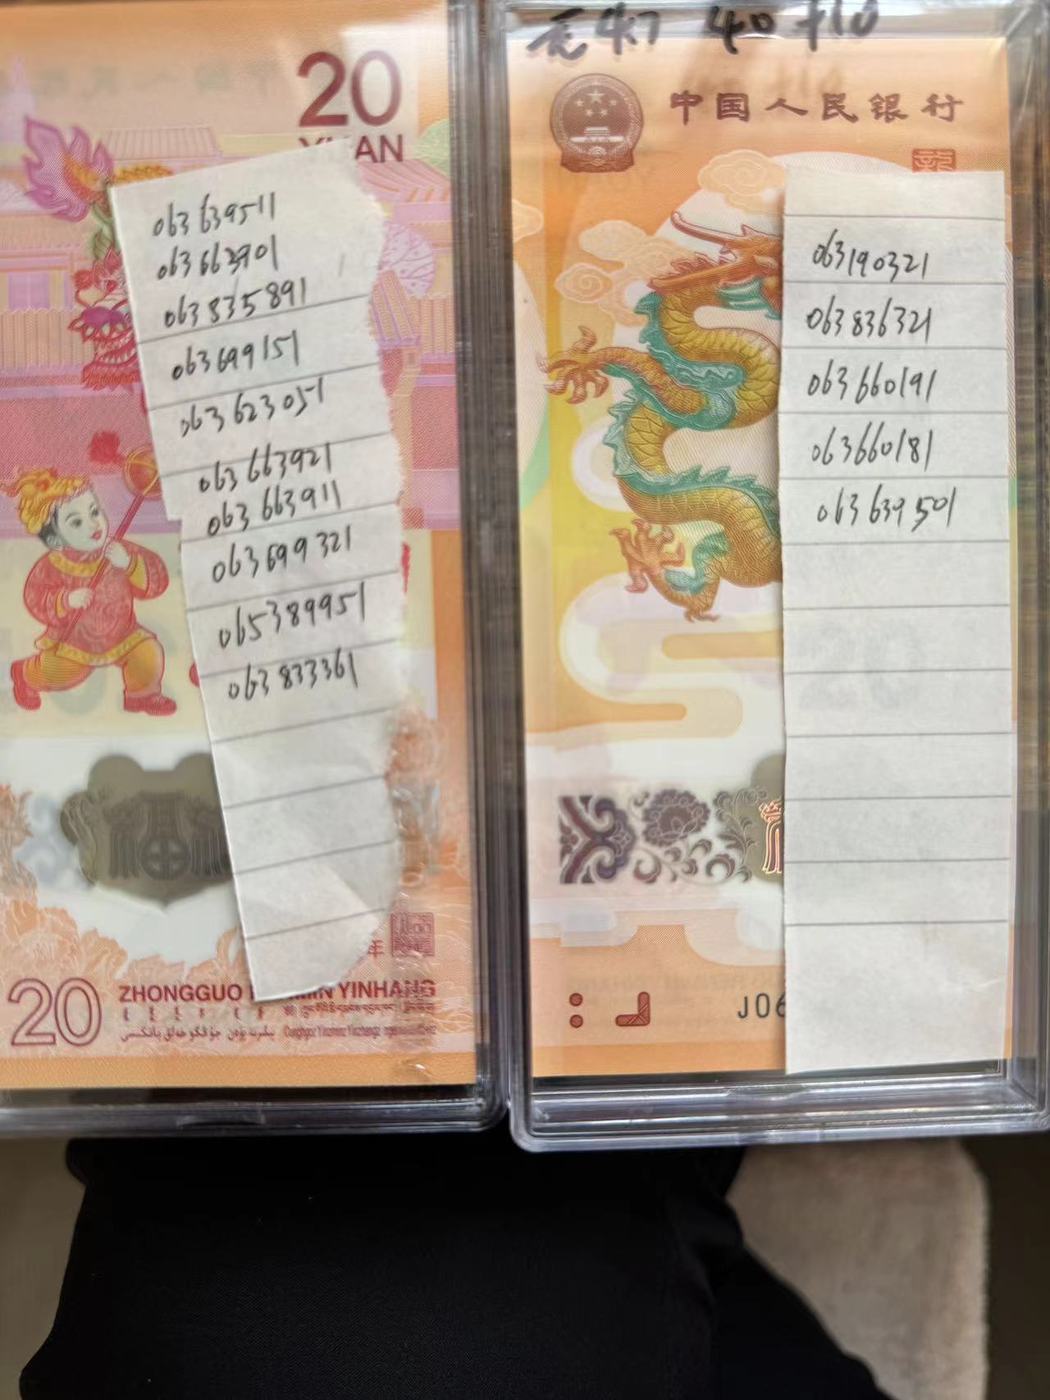 20
YUAN
063639511
063663901
063835891
063699151
063623051
063663921
063663911
063699321
065389951
063833361
年
20
ZHONGGUO MIN YINHANG
无47 40+10
中国人民银行
063190321
063836321
063660191
063660181
063639501
J06